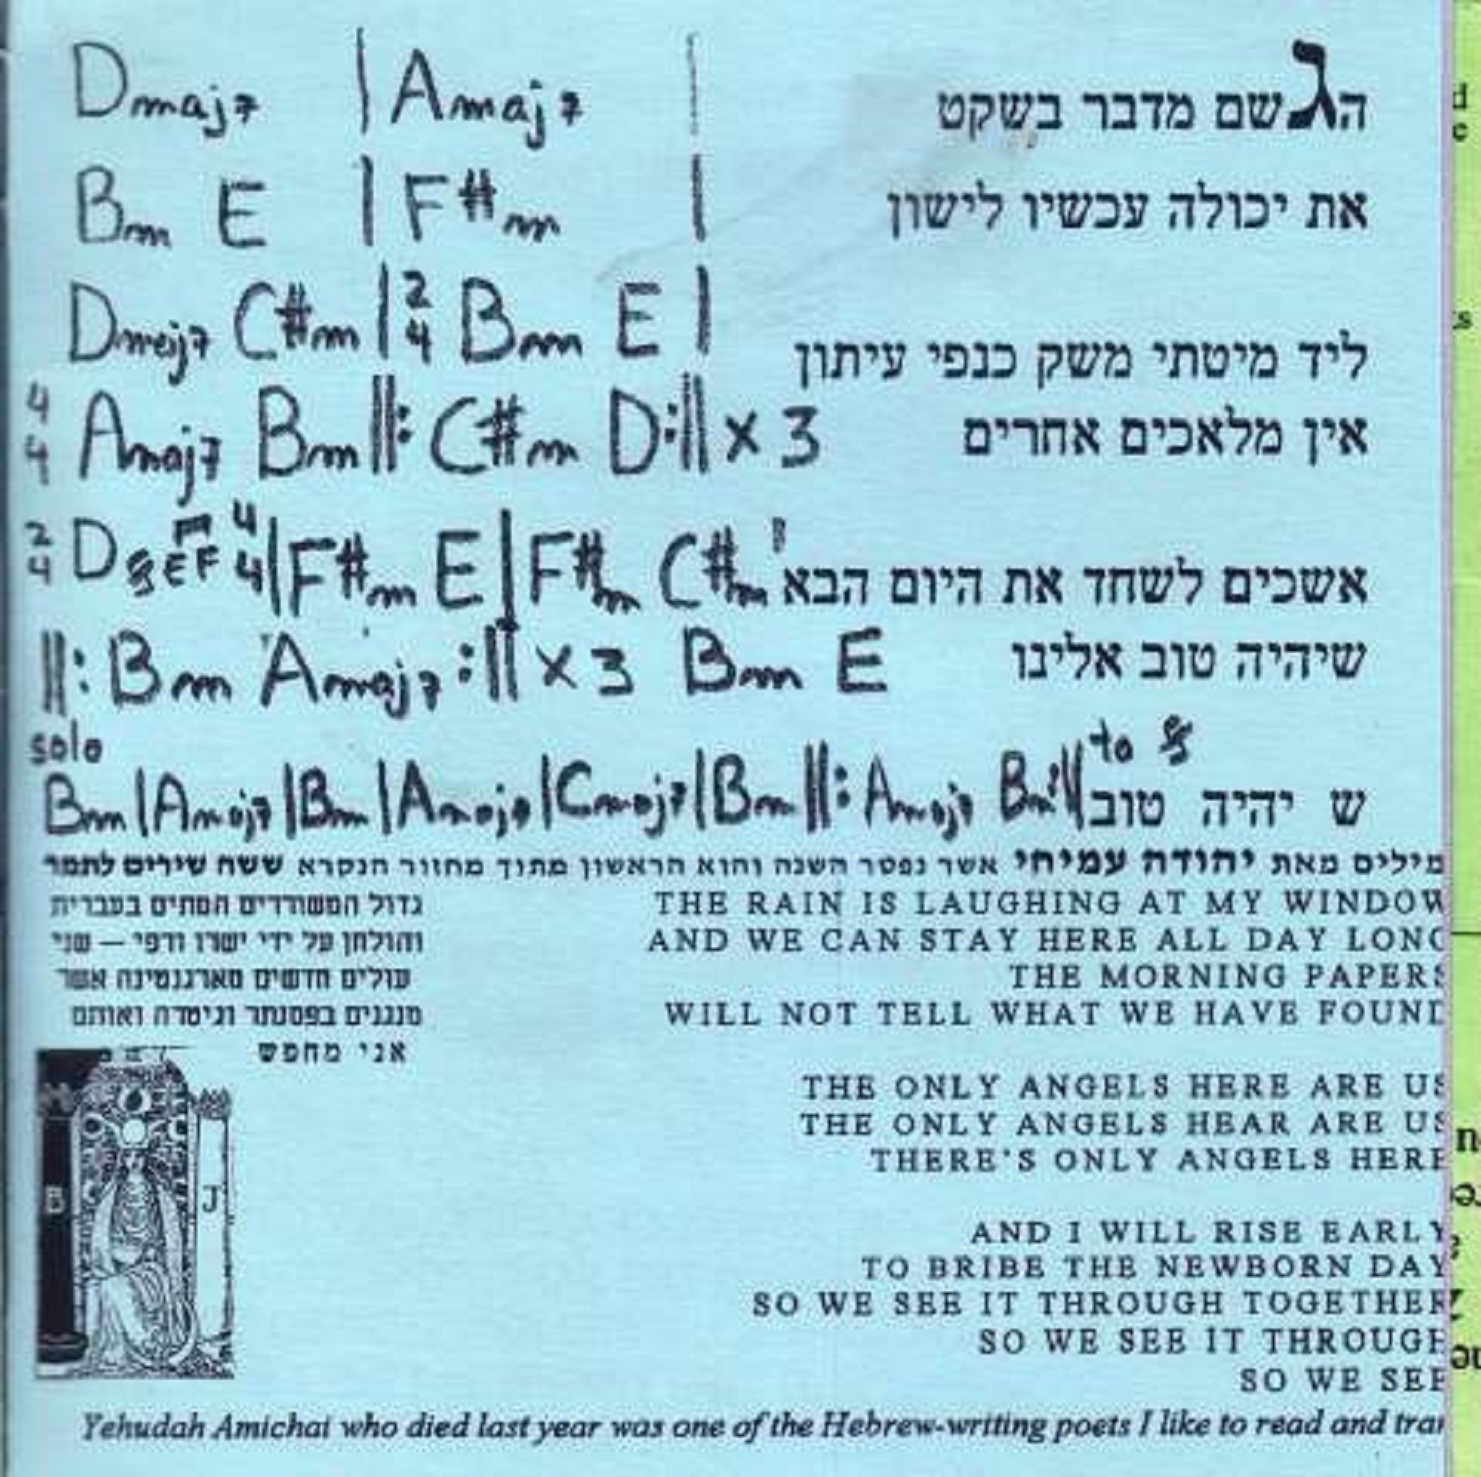 Dmaj7 | Amaj7 |
הגשם מדבר בשקט
Bm E | F#m |
את יכולה עכשיו לישון
Dmaj7 C#m | 2/4 Bm E |
ליד מיטתי משק כנפי עיתון
4/4 Amaj7 Bm ||: C#m D :|| x 3
אין מלאכים אחרים
2/4 D 𝄋 E F 4/4 | F#m E | F#m C#m
אשכים לשחד את היום הבא
||: Bm Amaj7 :|| x 3 Bm E
שיהיה טוב אלינו
solo
to 𝄋
Bm | Amaj7 | Bm | Amaj7 | Cmaj7 | Bm ||: Amaj7 Bm :||
ש יהיה טוב
מילים מאת יהודה עמיחי אשר נפטר השנה והוא הראשון מתוך מחזור הנקרא ששה שירים לתמר
גדול המשוררים המתים בעברית
והולחן על ידי ישרו ודפי — שני
עולים חדשים מארגנטינה אשר
מנגנים בפסנתר וגיטרה ואותם
אני מחפש
THE RAIN IS LAUGHING AT MY WINDOW
AND WE CAN STAY HERE ALL DAY LONG
THE MORNING PAPERS
WILL NOT TELL WHAT WE HAVE FOUND
THE ONLY ANGELS HERE ARE US
THE ONLY ANGELS HEAR ARE US
THERE'S ONLY ANGELS HERE
B J
AND I WILL RISE EARLY
TO BRIBE THE NEWBORN DAY
SO WE SEE IT THROUGH TOGETHER
SO WE SEE IT THROUGH
SO WE SEE
Yehudah Amichai who died last year was one of the Hebrew-writing poets I like to read and tran